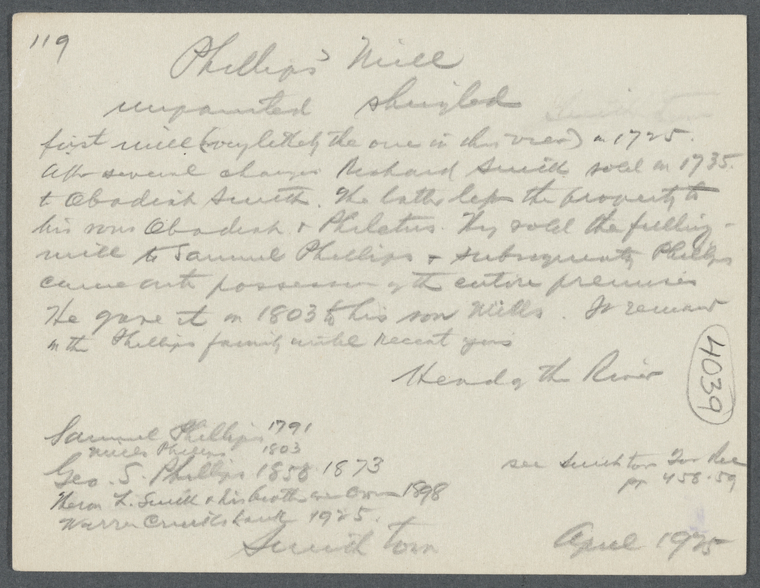 119
Phillips' Mill
unpainted shingled
first mill (very likely the one in this view) in 1725.
After several changes Richard Smith sold in 1735
to Obadiah Smith. The latter left the property to
his sons Obadiah & Philetus. They sold the fulling-
mill to Samuel Phillips & subsequently Phillips
came into possession of the entire premises
He gave it in 1803 to his son Mills. It remained
in the Phillips family until recent years
Head of the River
4039
Samuel Phillips 1791
Mills Phillips 1803
Geo. S. Phillips 1858 1873
Theron L. Smith & his brother were owners 1898
Warren Cruikshank 1925.
see Smithtown Town Rec
pp 458-59
Smithtown
April 1925